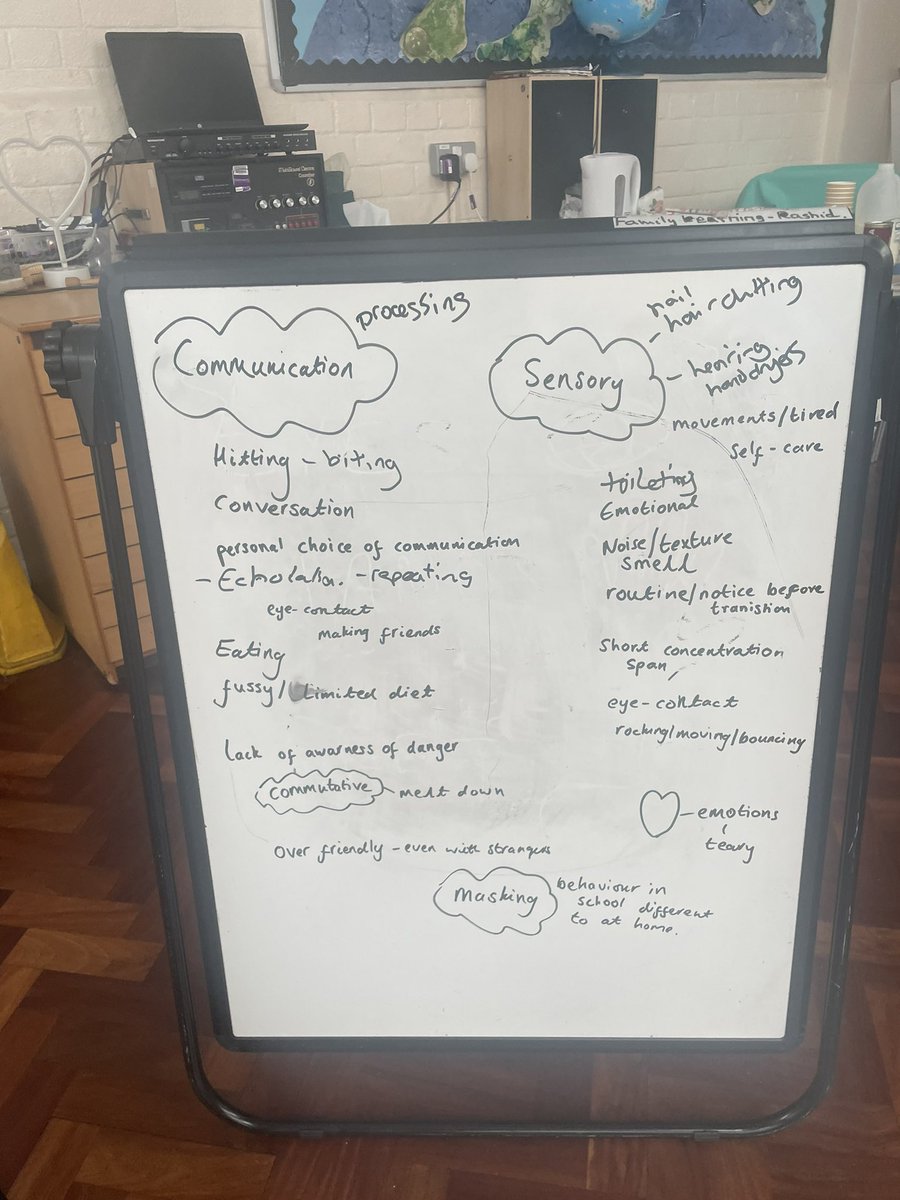 Family Learning - Rashid.
processing
Communication
Hitting - biting
Conversation
personal choice of communication
- Echolalia. - repeating
eye-contact
making friends
Eating
fussy/Limited diet
lack of awarness of danger
Commutative - melt down
Over friendly - even with strangers
Sensory
nail
- hair cutting
- hearing
handdryers
movements/tired
Self-care
toileting
Emotional
Noise/texture
smell
routine/notice before
tranistion
Short concentration
span
eye-contact
rocking/moving/bouncing
- emotions
teary
Masking
behaviour in
school different
to at home.